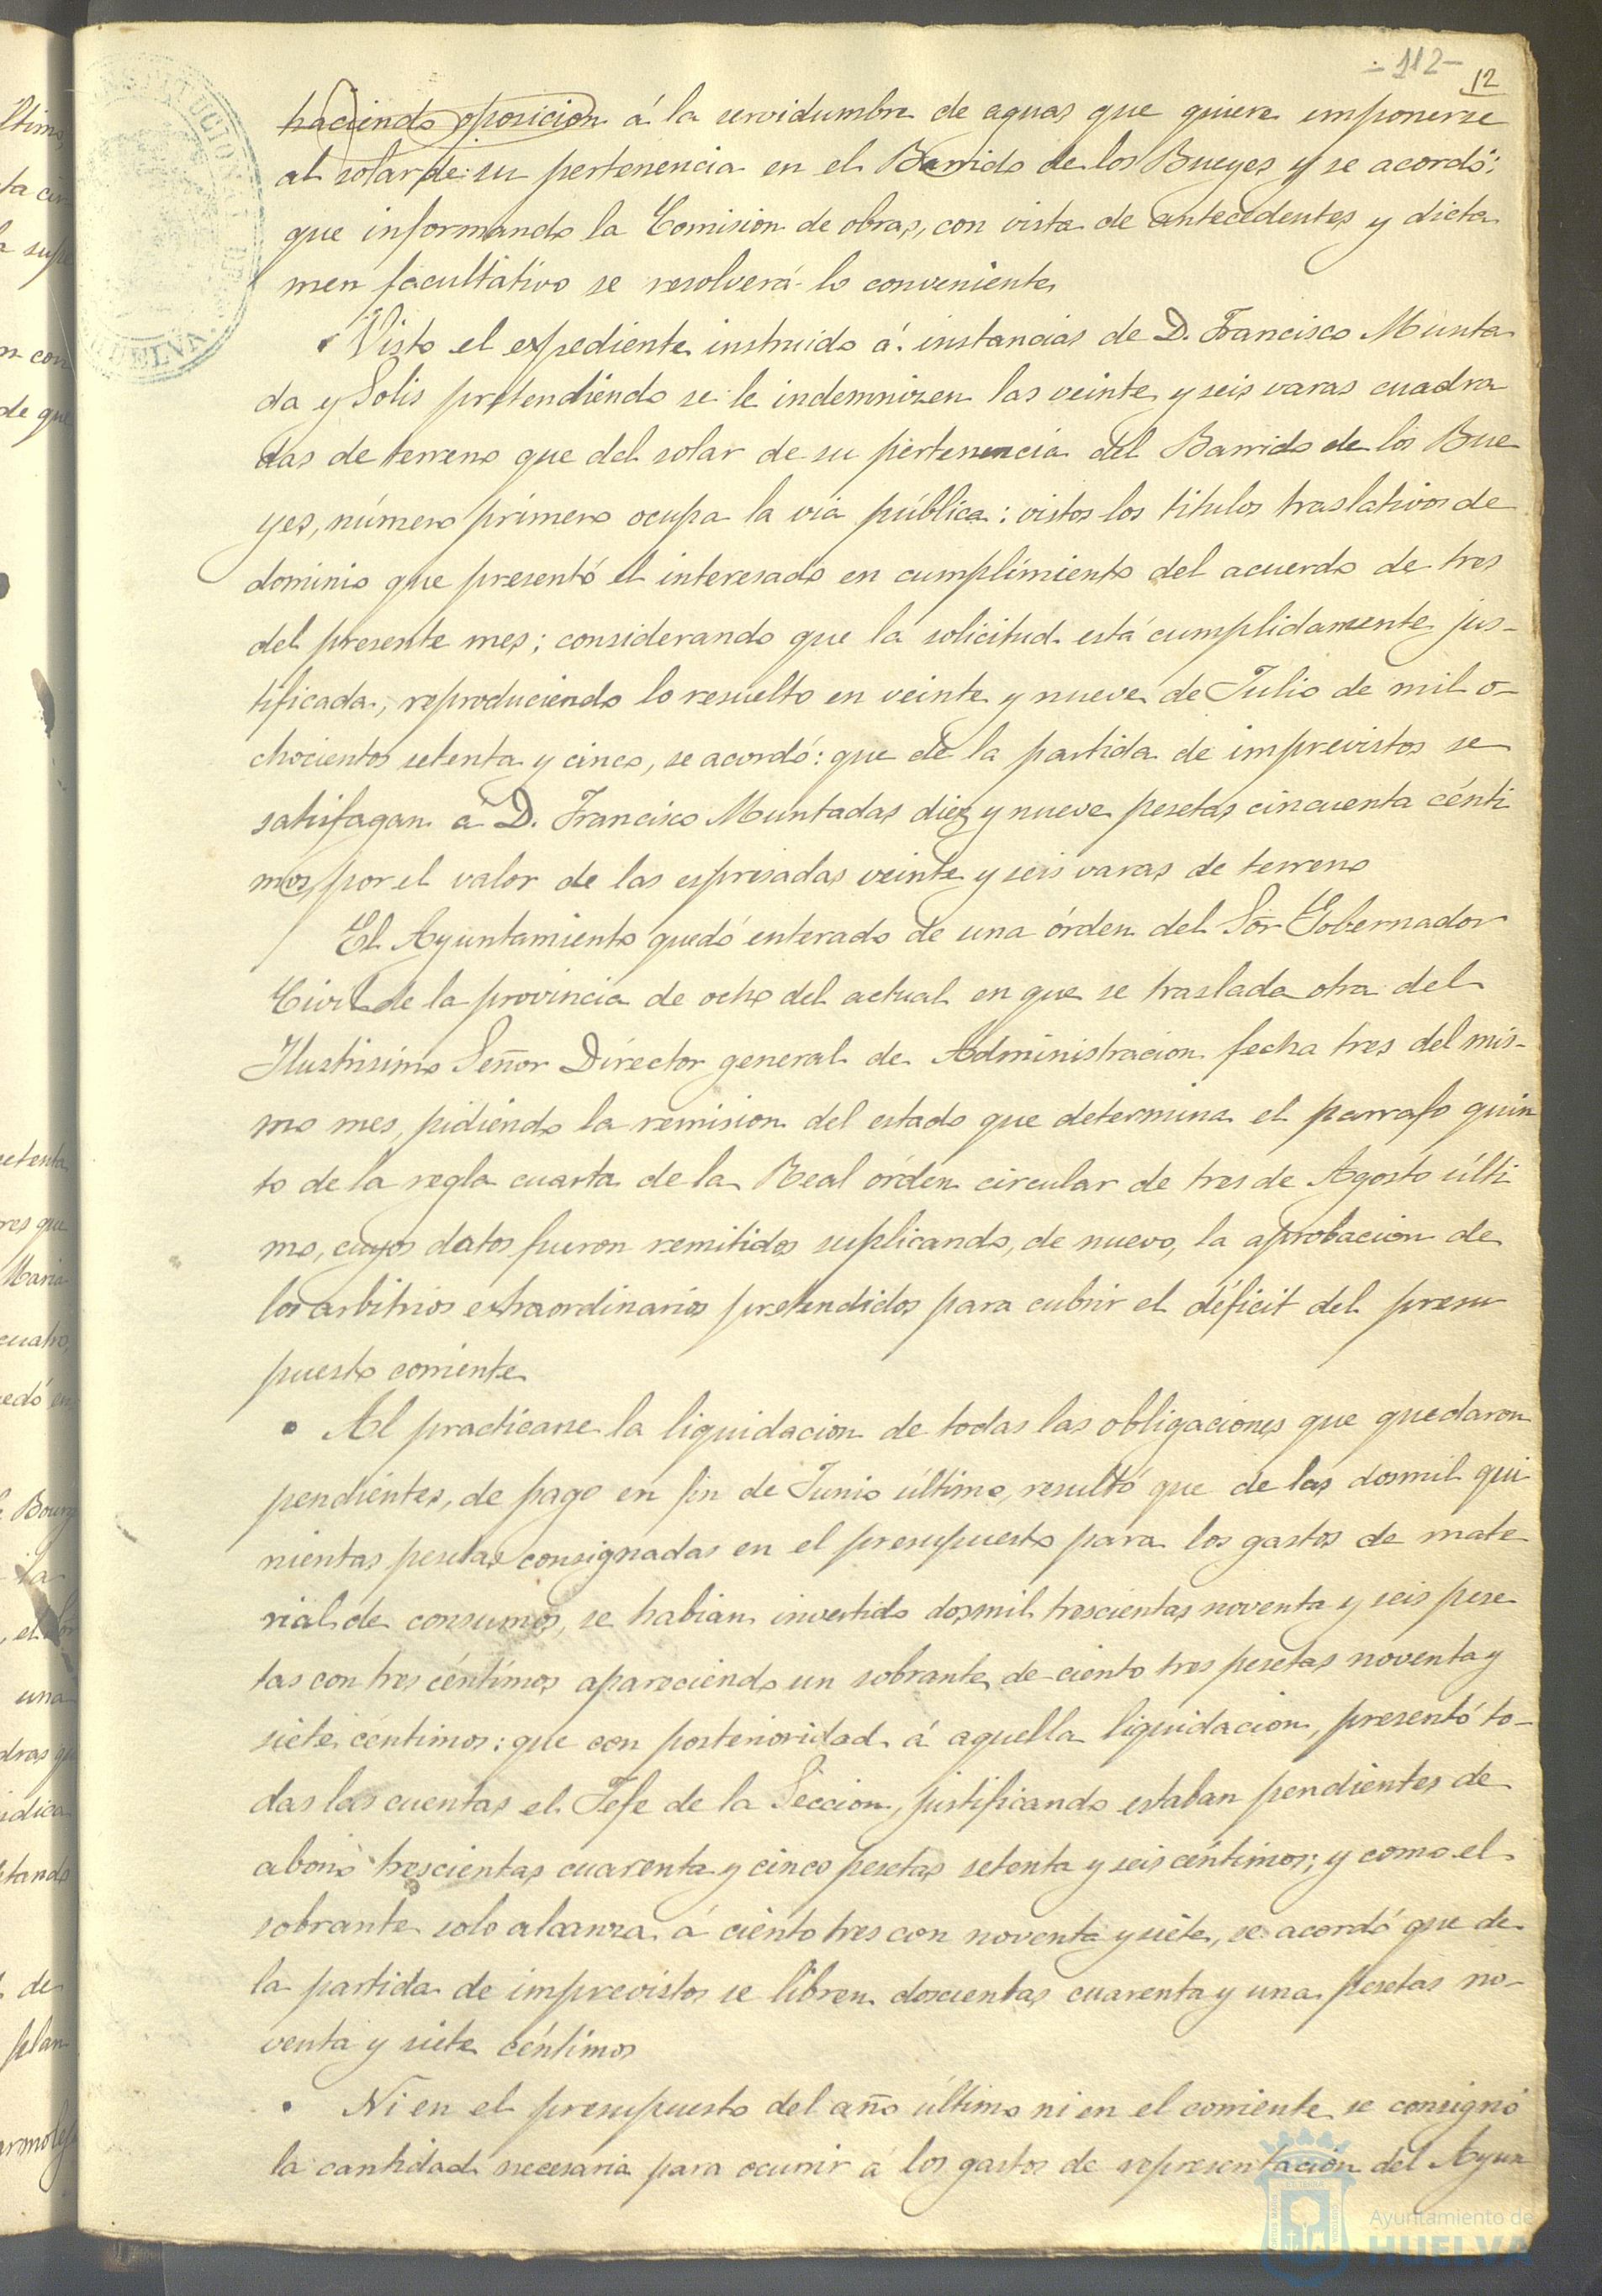 - 112 -
12
haciendo oposicion á la servidumbre de aguas que quiere imponerse
al solar de su pertenencia en el Barrido de los Bueyes y se acordó:
que informando la Comision de obras, con vista de antecedentes y dicta
men facultativo se resolverá lo conveniente
Visto el expediente instruido á instancias de D. Francisco Munta
da y Solis pretendiendo se le indemnizen las veinte y seis varas cuadra
das de terreno que del solar de su pertenencia del Barrido de los Bue
yes, número primero ocupa la via pública: vistos los titulos traslativos de
dominio que presentó el interesado en cumplimiento del acuerdo de tres
del presente mes; considerando que la solicitud está cumplidamente jus-
tificada, reproduciendo lo resuelto en veinte y nueve de Julio de mil o-
chocientos setenta y cinco, se acordó: que de la partida de imprevistos se
satisfagan á D. Francisco Muntadas diez y nueve pesetas cincuenta cénti
mos por el valor de las espresadas veinte y seis varas de terreno
El Ayuntamiento quedó enterado de una órden del Sor Gobernador
Civil de la provincia de ocho del actual en que se traslada otra del
Ilustrisimo Señor Director general de Administracion fecha tres del mis-
mo mes, pidiendo la remision del estado que determina el parrafo quin
to de la regla cuarta de la Real órden circular de tres de Agosto últi
mo, cuyos datos fueron remitidos suplicando, de nuevo, la aprobacion de
los arbitrios extraordinarios pretendidos para cubrir el déficit del presu
puesto corriente
Al practicarse la liquidacion de todas las obligaciones que quedaron
pendientes, de pago en fin de Junio último, resultó que de las dosmil qui
nientas pesetas consignadas en el presupuesto para los gastos de mate-
rial de consumos, se habian invertido dosmil trescientas noventa y seis pese
tas con tres céntimos apareciendo un sobrante de ciento tres pesetas noventa y
siete céntimos: que con posterioridad á aquella liquidacion, presentó to-
das las cuentas el Jefe de la Seccion, justificando estaban pendientes de
abono trescientas cuarenta y cinco pesetas setenta y seis céntimos; y como el
sobrante solo alcanza á ciento tres con noventa y siete, se acordó que de
la partida de imprevistos se libren doscientas cuarenta y una pesetas no-
venta y siete céntimos
Ni en el presupuesto del año último ni en el corriente se consignó
la cantidad necesaria para ocurrir á los gastos de representacion del Ayun
Ayuntamiento de
HUELVA